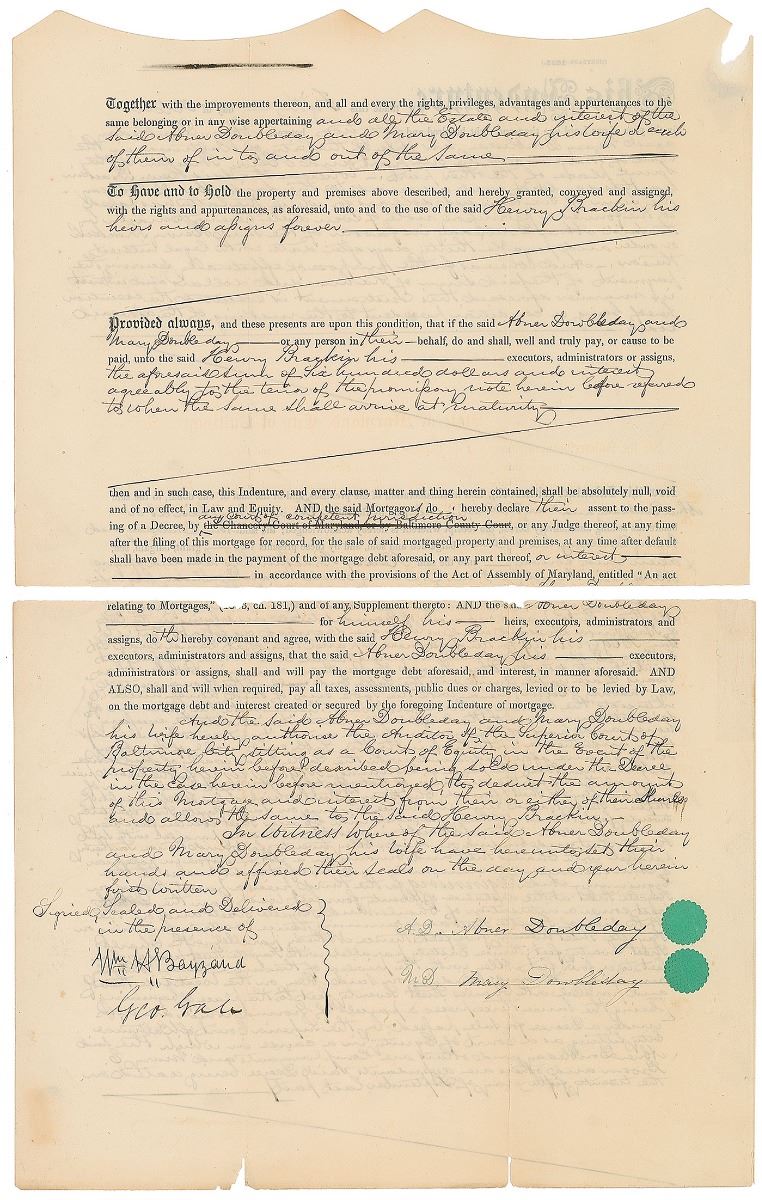 Together with the improvements thereon, and all and every the rights, privileges, advantages and appurtenances to the
same belonging or in any wise appertaining and all the Estate and interest of the
said Abner Doubleday and Mary Doubleday his wife & each
of them of in to and out of the same
To Have and to Hold the property and premises above described, and hereby granted, conveyed and assigned,
with the rights and appurtenances, as aforesaid, unto and to the use of the said Henry Brackin his
heirs and assigns forever.
Provided always, and these presents are upon this condition, that if the said Abner Doubleday and
Mary Doubleday or any person in their behalf, do and shall, well and truly pay, or cause to be
paid, unto the said Henry Brackin his executors, administrators or assigns,
the aforesaid sum of six hundred dollars and interest
agreeably to the tenor of the promissory note herein before referred
to when the same shall arrive at maturity
then and in such case, this Indenture, and every clause, matter and thing herein contained, shall be absolutely null, void
and of no effect, in Law and Equity. AND the said Mortgagors do hereby declare their assent to the pass-
any Court of competent jurisdiction
ing of a Decree, by the Chancery Court of Maryland, or by Baltimore County Court, or any Judge thereof, at any time
after the filing of this mortgage for record, for the sale of said mortgaged property and premises, at any time after default
shall have been made in the payment of the mortgage debt aforesaid, or any part thereof, or interest
in accordance with the provisions of the Act of Assembly of Maryland, entitled "An act
relating to Mortgages," ch. 181,) and of any Supplement thereto: AND the Abner Doubleday
for himself his heirs, executors, administrators and
assigns, doth hereby covenant and agree, with the said Henry Brackin his
executors, administrators and assigns, that the said Abner Doubleday his executors,
administrators or assigns, shall and will pay the mortgage debt aforesaid, and interest, in manner aforesaid. AND
ALSO, shall and will when required, pay all taxes, assessments, public dues or charges, levied or to be levied by Law,
on the mortgage debt and interest created or secured by the foregoing Indenture of mortgage.
And the said Abner Doubleday and Mary Doubleday
his wife hereby authorise the Auditor of the Superior Court of
Baltimore City sitting as a Court of Equity in the Event of the
property herein before described being sold under the Decree
in the case herein before mentioned, to deduct the amount
of this Mortgage and interest from their or either of their shares
and allow the same to the said Henry Brackin.
In Witness Whereof the said Abner Doubleday
and Mary Doubleday his wife have hereunto set their
hands and affixed their seals on the day and year herein
first written
Signed, Sealed and Delivered
in the presence of
Wm H Bayzand
Geo. Gale
A.D. Abner Doubleday
M.D. Mary Doubleday